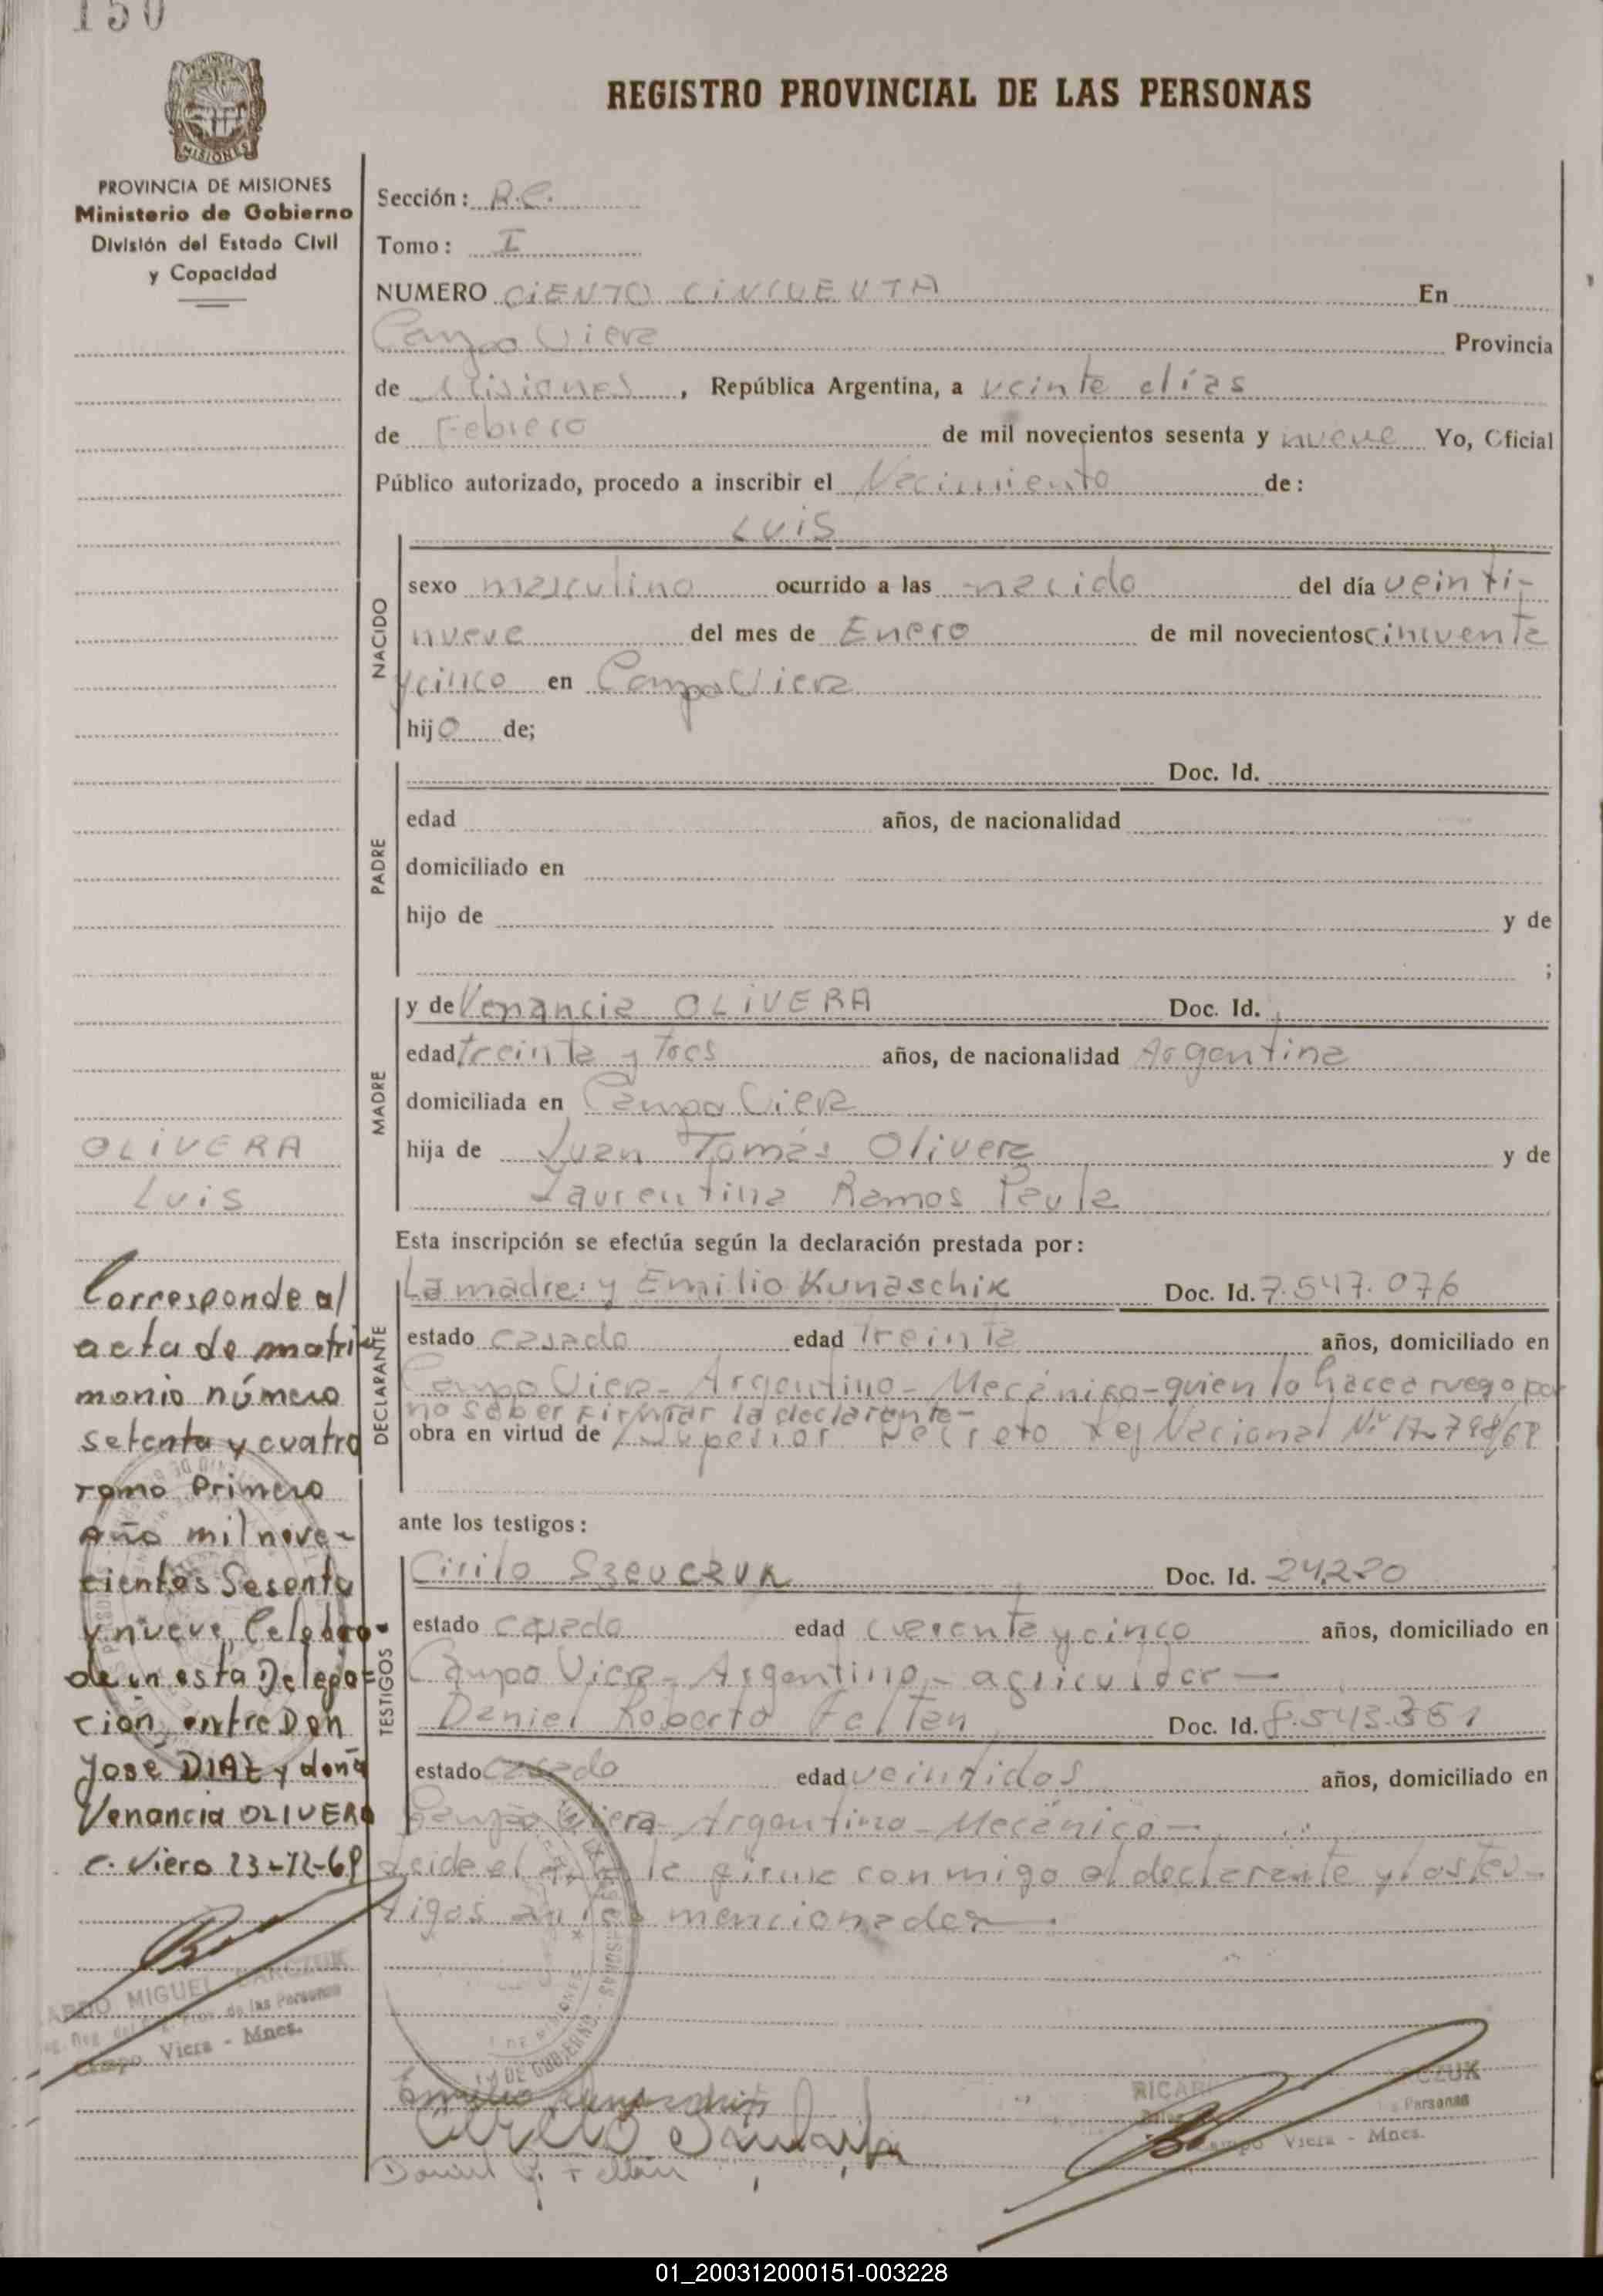 150
REGISTRO PROVINCIAL DE LAS PERSONAS
MISIONES
PROVINCIA DE MISIONES
Ministerio de Gobierno
División del Estado Civil
y Capacidad
Sección: R.C.
Tomo: I
NUMERO CIENTO CINCUENTA En
Campo Viera Provincia
de Misiones, República Argentina, a veinte días
de Febrero de mil novecientos sesenta y nueve Yo, Oficial
Público autorizado, procedo a inscribir el Nacimiento de:
LUIS
NACIDO
sexo masculino ocurrido a las nacido del día veinti-
nueve del mes de Enero de mil novecientos cincuenta
y cinco en Campo Viera
hijo de;
PADRE
Doc. Id.
edad años, de nacionalidad
domiciliado en
hijo de y de
;
MADRE
y de Venancia OLIVERA Doc. Id.
edad treinta y tres años, de nacionalidad Argentina
domiciliada en Campo Viera
hija de Juan Tomás Olivera y de
Laurentina Ramos Paula
Esta inscripción se efectúa según la declaración prestada por:
DECLARANTE
La madre y Emilio Kunaschik Doc. Id. 7.547.076
estado casado edad treinta años, domiciliado en
Campo Viera - Argentino - Mecánico - quien lo hace a ruego por
no saber firmar la declarante-
obra en virtud de Superior Decreto Ley Nacional Nº
ante los testigos:
TESTIGOS
Cirilo Szeuczuk Doc. Id. 24.220
estado casado edad cuarenta y cinco años, domiciliado en
Campo Viera - Argentino - agricultor -
Daniel Roberto Felten Doc. Id. 8.543.351
estado casado edad veintidos años, domiciliado en
Campo Viera - Argentino - Mecánico -
Leida el acta la firma conmigo el declarante y los tes-
tigos antes mencionados.
OLIVERA
Luis
Corresponde al
acta de matri-
monio número
setenta y cuatro
Tomo Primero
Año mil nove-
cientos Sesenta
y nueve, Celebra-
da en esta Delega-
cion, entre Don
José DIAZ y doña
Venancia OLIVERA
C. Viera 23-12-69
MIGUEL
de las Personas
Campo Viera - Mnes.
Daniel R. Felten
RICAR
Personas
Campo Viera - Mnes.
01_200312000151-003228